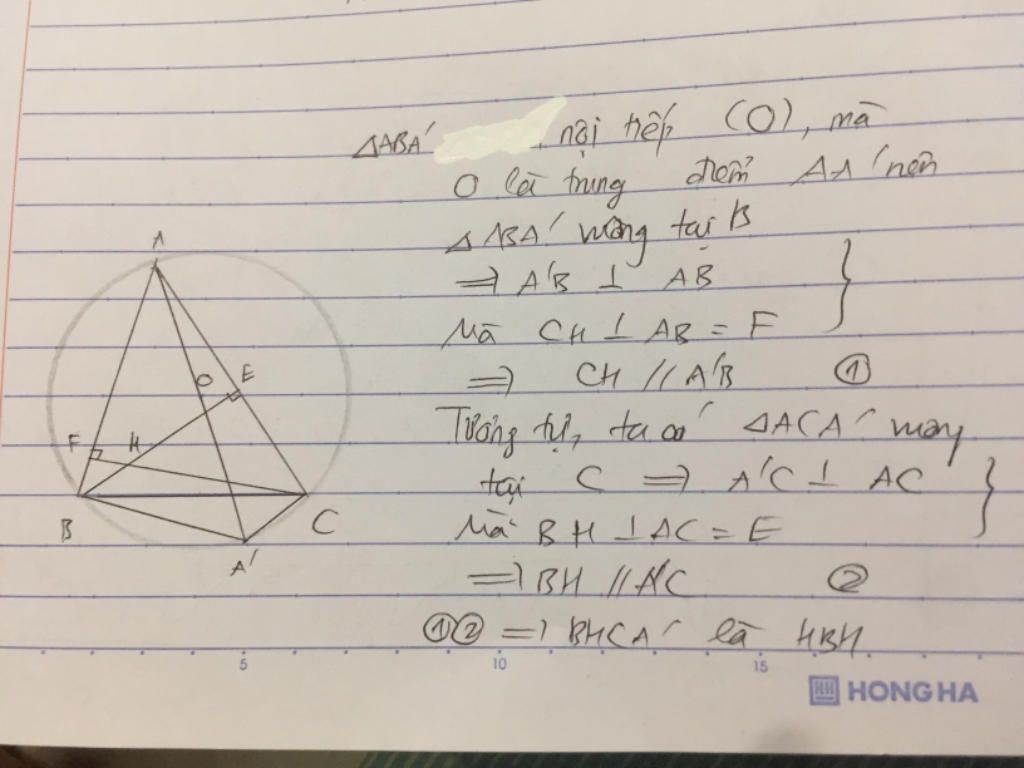 ΔABA' nội tiếp (O), mà
O là trung điểm AA' nên
ΔABA' vuông tại B
=> A'B ⊥ AB
Mà CH ⊥ AB = F
=> CH // A'B ①
Tương tự, ta có ΔACA' vuông
tại C => A'C ⊥ AC
Mà BH ⊥ AC = E
=> BH // A'C ②
①② => BHCA' là HBH
A
O
E
F
H
B
C
A'
5 10 15
HONG HA